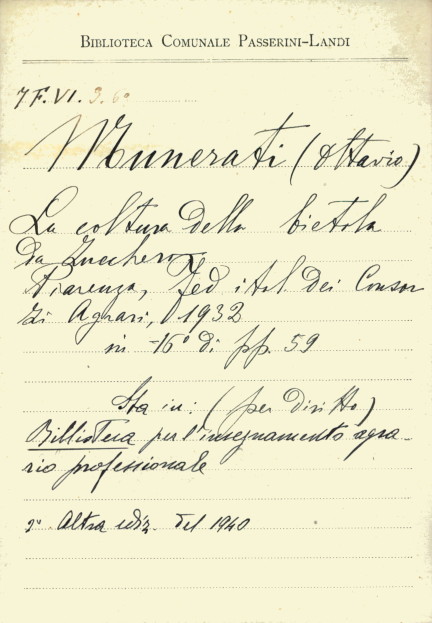 BIBLIOTECA COMUNALE PASSERINI-LANDI
7 F. VI. 3. 60
Munerati (Ottavio)
La coltura della bietola
da Zucchero
Piacenza, Fed ital dei Consor
zi Agrari, 1932
in -16° di pp. 59
Sta in: (per diritto)
Biblioteca per l'insegnamento agra-
rio professionale
Altra ediz. del 1940